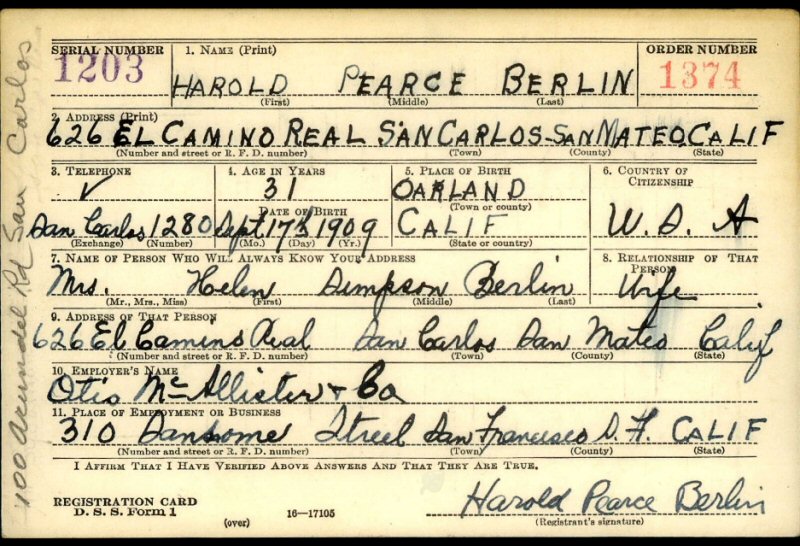 SERIAL NUMBER 1. NAME (Print) ORDER NUMBER
1203 HAROLD PEARCE BERLIN 1374
(First) (Middle) (Last)
2. ADDRESS (Print)
626 EL CAMINO REAL SAN CARLOS SAN MATEO CALIF
(Number and street or R. F. D. number) (Town) (County) (State)
3. TELEPHONE 4. AGE IN YEARS 5. PLACE OF BIRTH 6. COUNTRY OF CITIZENSHIP
31 OAKLAND
DATE OF BIRTH (Town or county)
San Carlos 1280 Sept 17th 1909 CALIF U. S. A
(Exchange) (Number) (Mo.) (Day) (Yr.) (State or country)
7. NAME OF PERSON WHO WILL ALWAYS KNOW YOUR ADDRESS 8. RELATIONSHIP OF THAT PERSON
Mrs. Helen Simpson Berlin Wife
(Mr., Mrs., Miss) (First) (Middle) (Last)
9. ADDRESS OF THAT PERSON
626 El Camino Real San Carlos San Mateo Calif
(Number and street or R. F. D. number) (Town) (County) (State)
10. EMPLOYER'S NAME
Otis McAllister & Co
11. PLACE OF EMPLOYMENT OR BUSINESS
310 Sansome Street San Francisco S. F. CALIF
(Number and street or R. F. D. number) (Town) (County) (State)
I AFFIRM THAT I HAVE VERIFIED ABOVE ANSWERS AND THAT THEY ARE TRUE.
REGISTRATION CARD
D. S. S. Form 1 (over) 16—17105
Harold Pearce Berlin
(Registrant's signature)
100 Arundel Rd San Carlos